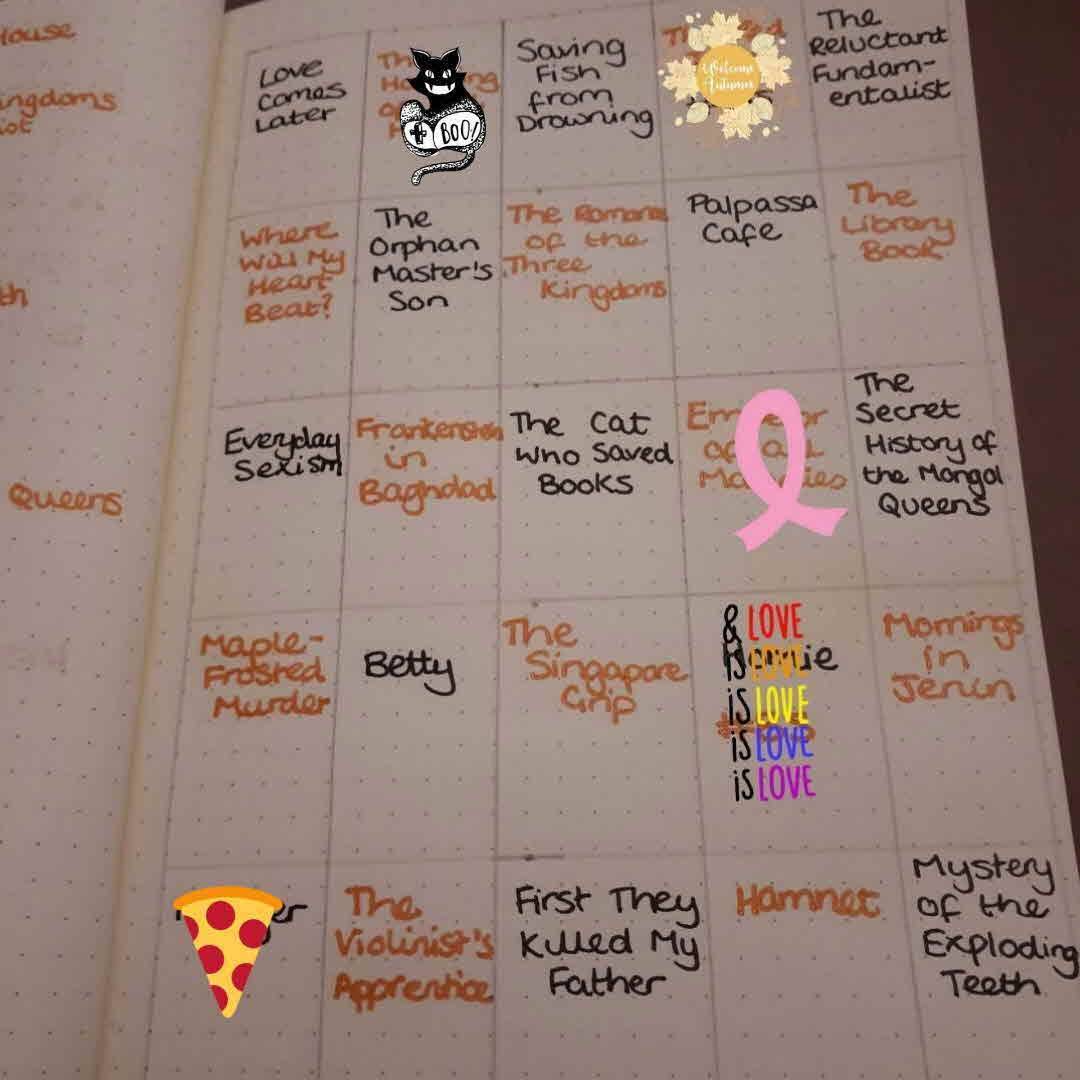 House
Kingdoms
Queens
Love
Comes
Later
BOO!
Saving
Fish
from
Drowning
Welcome
Autumn
The
Reluctant
Fundam-
entalist
Where
Will My
Heart
Beat?
The
Orphan
Master's
Son
The Romance
of the
Three
Kingdoms
Palpassa
Cafe
The
Library
Book
Everyday
Sexism
Frankenstein
in
Baghdad
The Cat
Who Saved
Books
The
Secret
History of
the Mongol
Queens
Maple-
Frosted
Murder
Betty
The
Singapore
Grip
& LOVE
is LOVE
is LOVE
is LOVE
is LOVE
Mornings
in
Jenin
The
Violinist's
Apprentice
First They
Killed My
Father
Hamnet
Mystery
of the
Exploding
Teeth